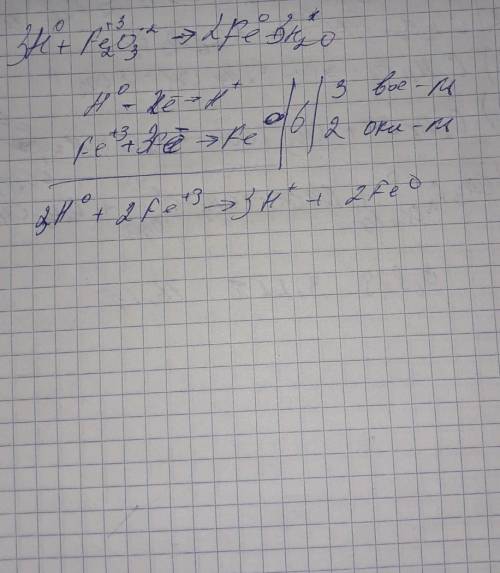 3H⁰ + Fe₂⁺³O₃⁻² → 2Fe⁰ + 3H₂⁺O
H⁰ - 2ē → H⁺ | 6 | 3 вос-ль
Fe⁺³ + 3ē → Fe⁰ | 2 оки-ль
3H⁰ + 2Fe⁺³ → 3H⁺ + 2Fe⁰